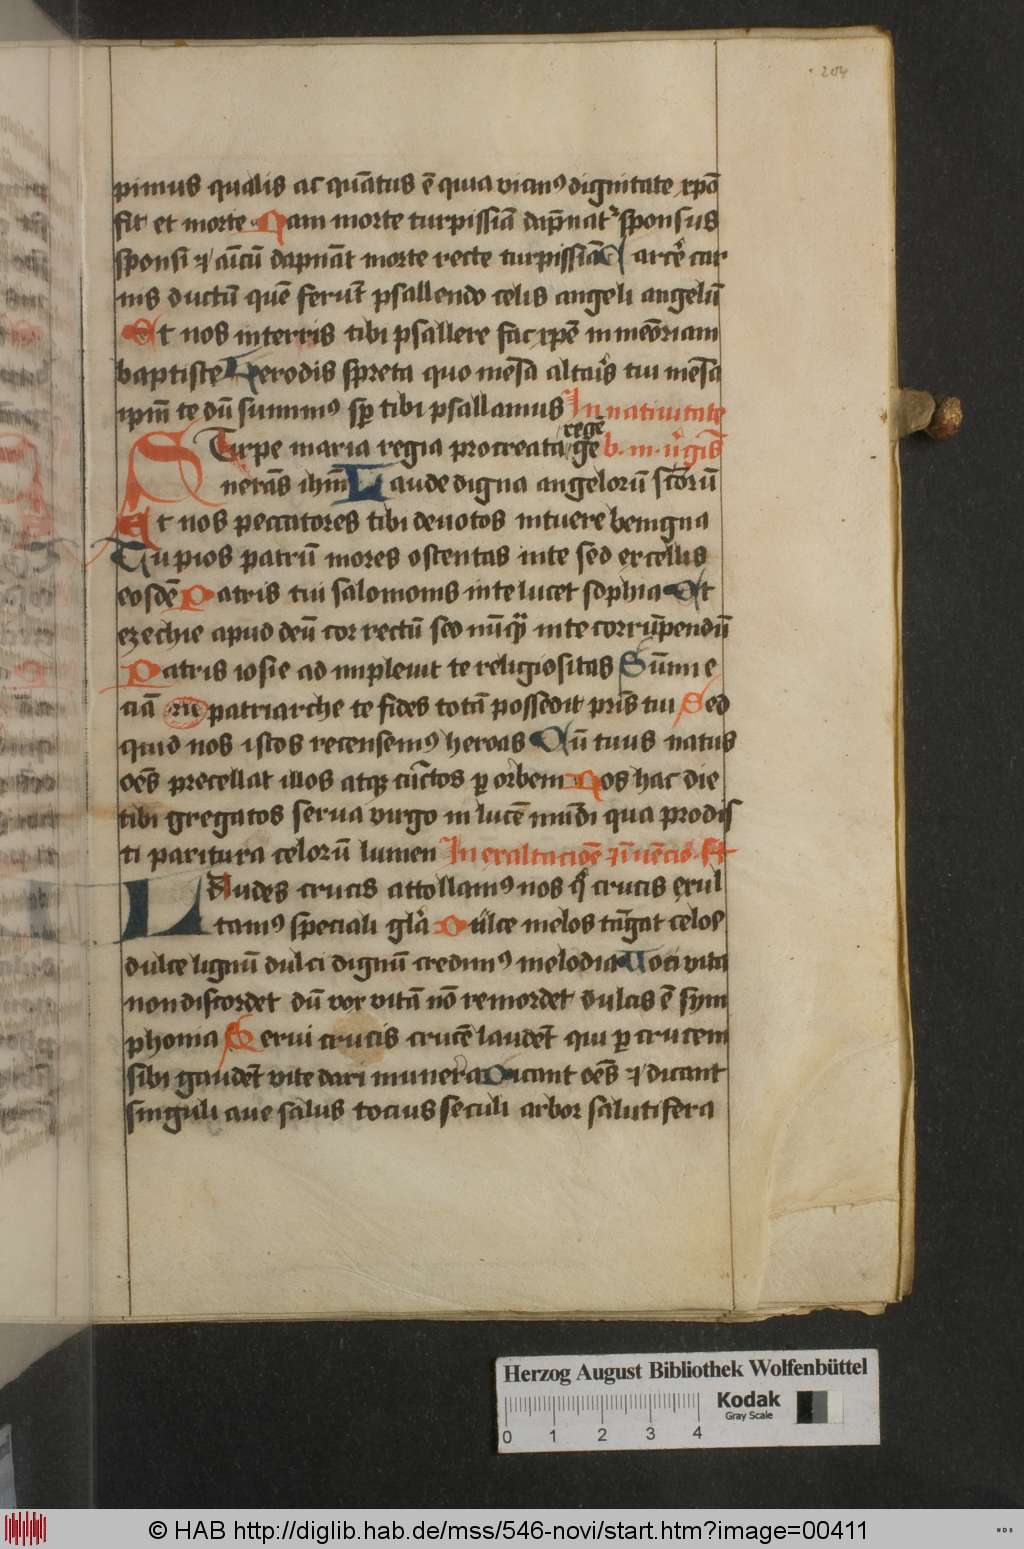 204
pimus qualis ac quātus ē quia vicinꝰ dignitate xpō
fit et morte Nam morte turpissiā dāpnat᷑ sponsus
sponsi ⁊ aīcū dapnāt morte recte turpissiā A arcē car
nis ductū quē ferūt psallendo celis angeli angelū
Et nos in terris tibi psallere fac xpē in meōriam
baptiste Herodis spreta quo mēsa altaris tui mēsa
ip̄m te dū sumimꝰ sp̄ tibi psallamus In natiuitate
rege
Stirpe maria regia procreata gē b. m. v̓gis̄
nerās ihm̄ Laude digna angelorū sctōrū
Et nos peccatores tibi deuotos intuere benigna
Tu pios patrū mores ostentas in te sed excellis
eosdē Patris tui salomonis in te lucet sophia Et
ezechie apud deū cor rectū sed nūq̄ in te corrūpendū
Patris iosie ad impleuit te religiositas Sūmi e
ciā rū patriarche te fides totā possedit pr̄is tui Sed
quid nos istos recensemꝰ heroas Cū tuus natus
oēs precellat illos atqꝫ cūctos ꝑ orbem Nos hac die
tibi gregatos serua virgo in lucē mūdi qua prodis
ti paritura celorū lumen In exaltacione ⁊ īuēcio S C
Laudes crucis attollamꝰ nos q̄ crucis exul
tamꝰ speciali glā Dulce melos tāgat celos
dulce lignū dulci dignū credimꝰ melodia Voci vita
non discordet dū vox vitā nō remordet dulcis ē sym
phonia Serui crucis crucē laudēt qui ꝑ crucem
sibi gaudēt vite dari munera Dicant oēs ⁊ dicant
singuli aue salus tocius seculi arbor salutifera
Herzog August Bibliothek Wolfenbüttel
Kodak
Gray Scale
0 1 2 3 4
© HAB http://diglib.hab.de/mss/546-novi/start.htm?image=00411